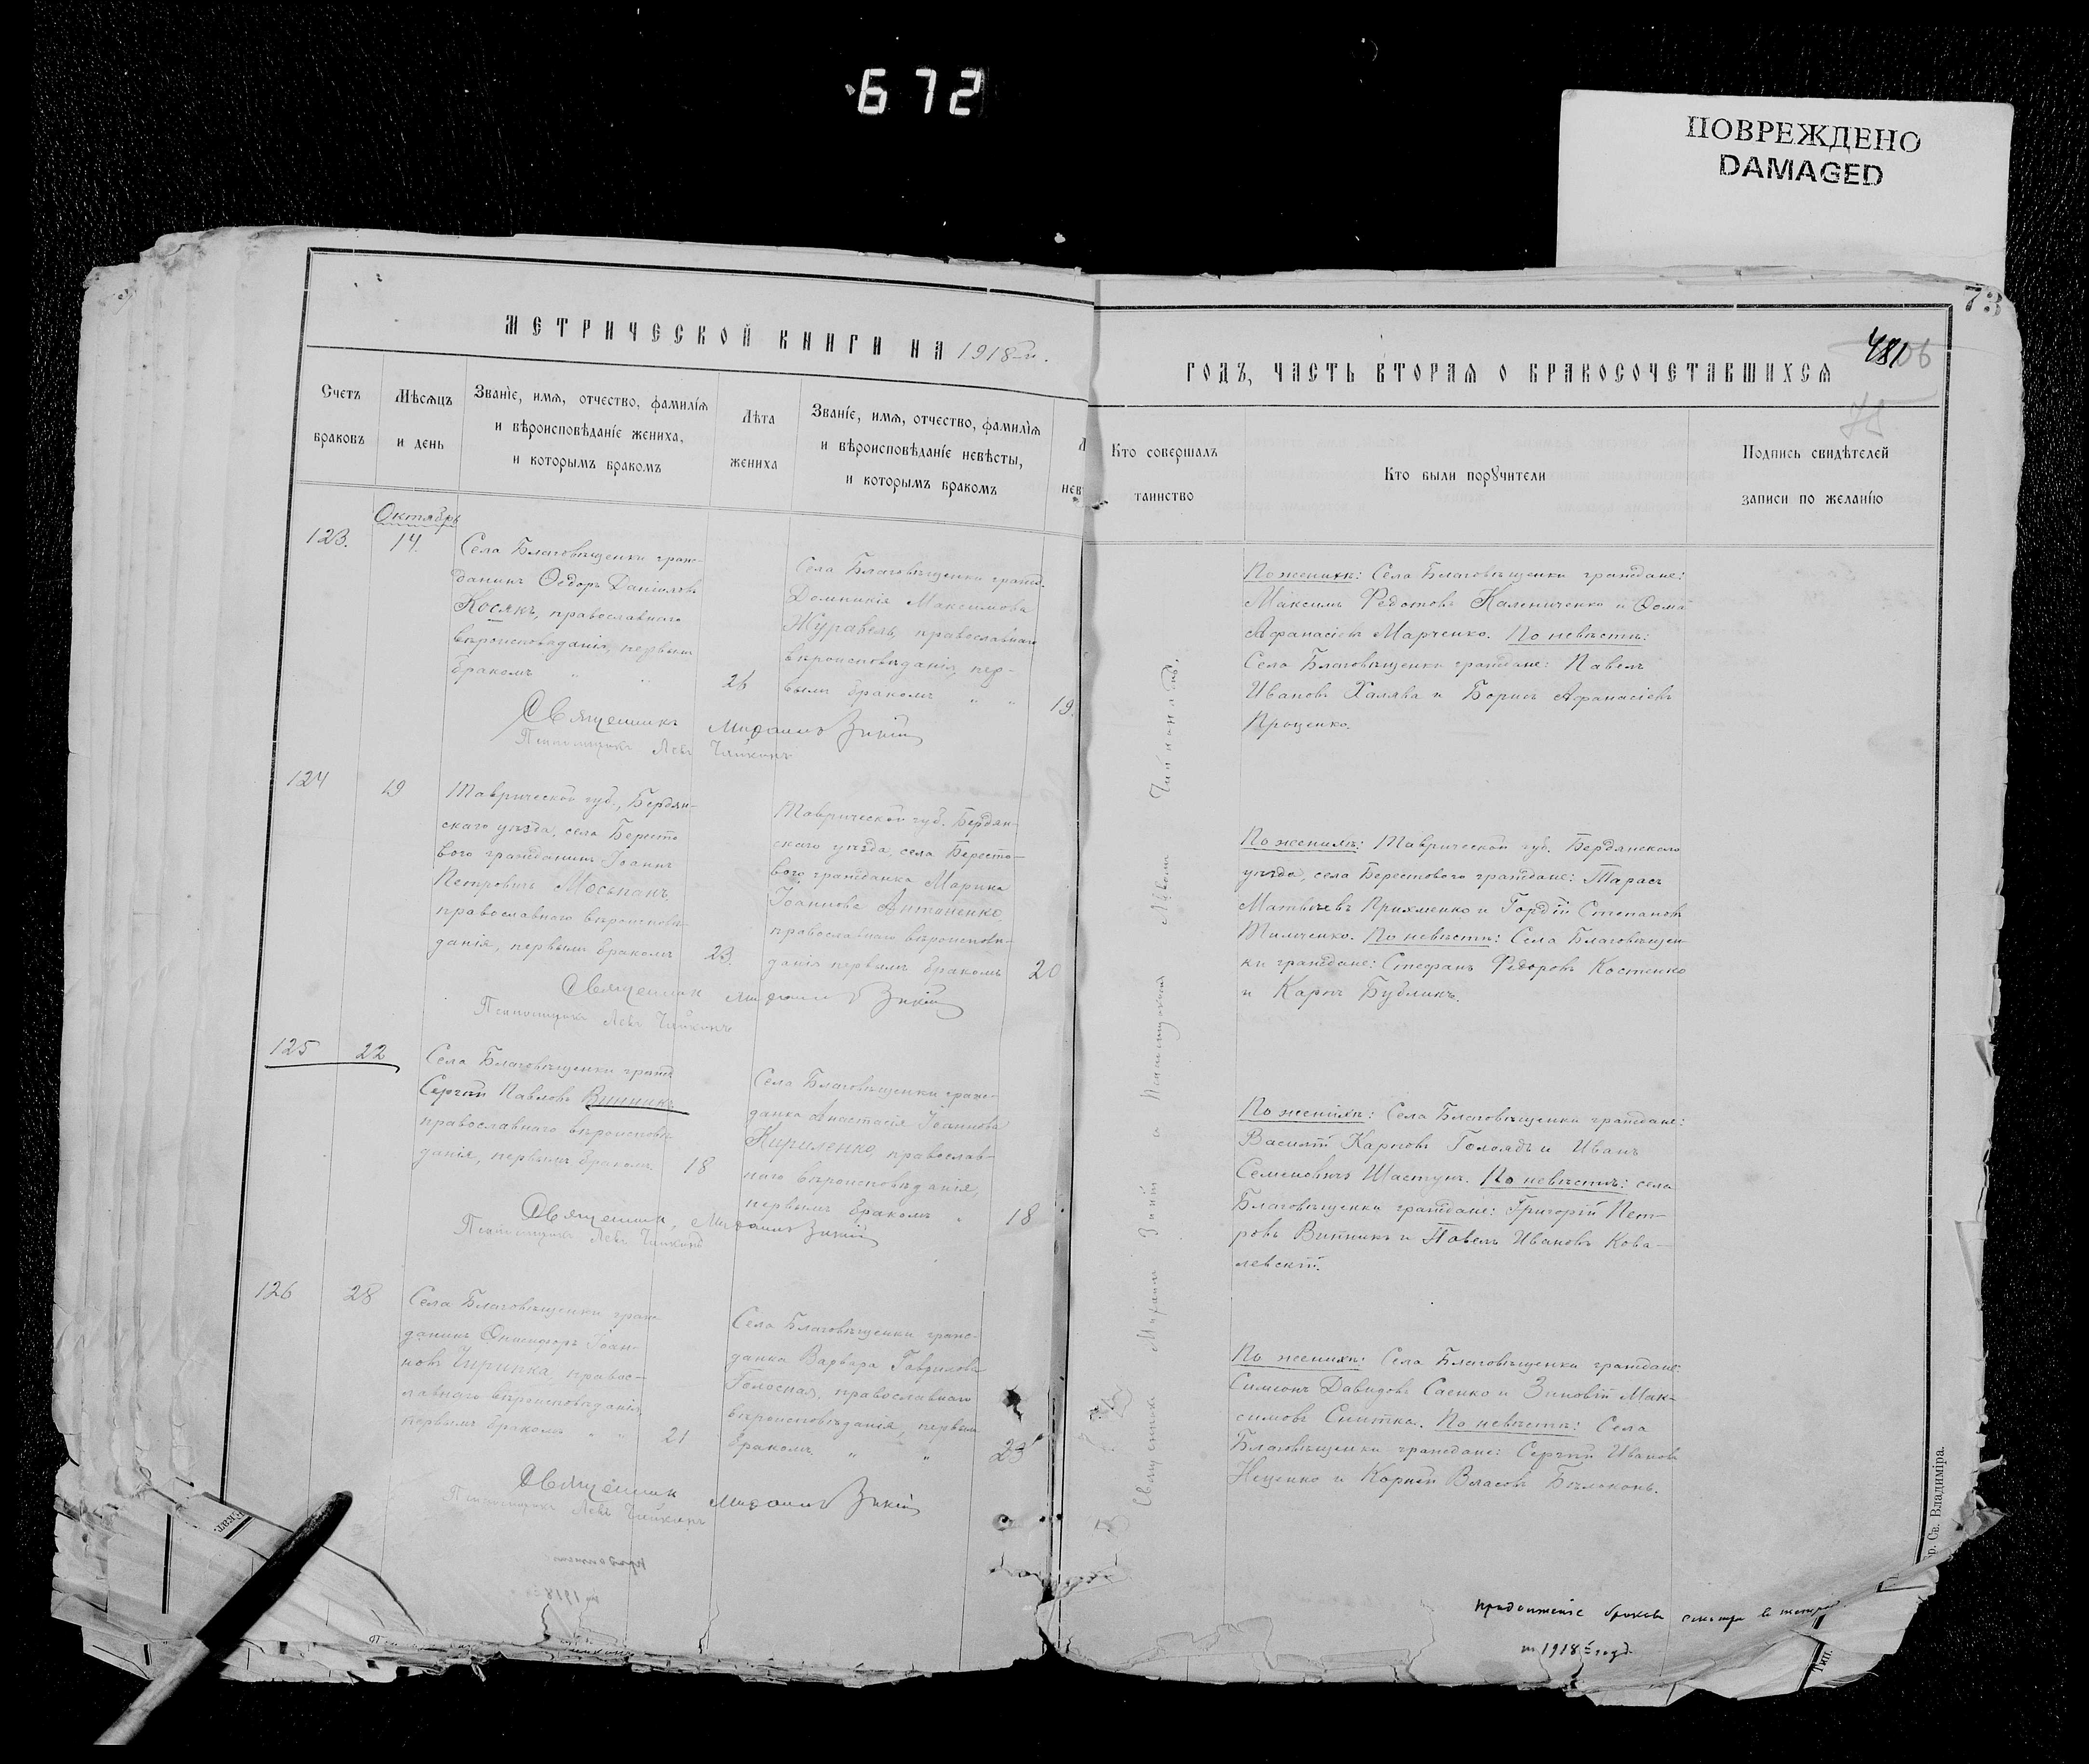 672
ПОВРЕЖДЕНО
DAMAGED
73
МЕТРИЧЕСКОЙ КНИГИ НА 1918 г.
Счетъ браковъ
Мѣсяцъ и день
Званіе, имя, отчество, фамилія
и вѣроисповѣданіе жениха,
и которымъ бракомъ
Лѣта жениха
Званіе, имя, отчество, фамилія
и вѣроисповѣданіе невѣсты,
и которымъ бракомъ
481
78
ГОДЪ, ЧАСТЬ ВТОРАЯ О БРАКОСОЧЕТАВШИХСЯ
Кто совершалъ
таинство
Кто были поручители
Подпись свидѣтелей
записи по желанію
Октябрь
123.
14.
Села Благовѣщенки граж-
данинъ Ѳедоръ Даніиловъ
Косякъ, православнаго
вѣроисповѣданія, первымъ
бракомъ " "
26
Села Благовѣщенки гражд.
Домникія Максимова
Журавель, православнаго
вѣроисповѣданія, пер-
вымъ бракомъ " "
19.
Священникъ Михаилъ Зикій
Псаломщикъ Левъ Чайкинъ
По женихѣ: Села Благовѣщенки граждане:
Максимъ Федотовъ Калениченко и Ѳома
Афанасіевъ Марченко. По невѣстѣ:
Села Благовѣщенки граждане: Павелъ
Ивановъ Халява и Борисъ Афанасіевъ
Проценко.
124
19
Таврической губ., Бердян-
скаго уѣзда, села Бересто
вого гражданинъ Іоаннъ
Петровичъ Моспанъ,
православнаго вѣроисповѣ-
данія, первымъ бракомъ
23.
Таврической губ. Бердян-
скаго уѣзда, села Бересто-
вого гражданка Марина
Іоаннова Антоненко,
православнаго вѣроисповѣ-
данія первымъ бракомъ
20
Священник Михаилъ Зикій
Псаломщикъ Левъ Чайкинъ
По женихѣ: Таврической губ. Бердянскаго
уѣзда, села Берестового граждане: Тарасъ
Матвѣевъ Прихменко и Гордій Степановъ
Тимченко. По невѣстѣ: Села Благовѣщен-
ки граждане: Стефанъ Федоровъ Костенко
и Карпъ Бубликъ.
125
22
Села Благовѣщенки гражд
Сергій Павловъ Винникъ
православнаго вѣроисповѣ-
данія, первымъ бракомъ
18
Села Благовѣщенки граж-
данка Анастасія Іоаннова
Кириленко, православ-
наго вѣроисповѣданія,
первымъ бракомъ "
18
Священник, Михаилъ Зикій
Псаломщикъ Левъ Чайкинъ
По женихѣ: Села Благовѣщенки граждане:
Василій Карповъ Голоядъ и Иванъ
Семеновичъ Шастунъ. По невѣстѣ: села
Благовѣщенки граждане: Григорій Пет-
ровъ Винникъ и Павелъ Ивановъ Кова-
левскій.
126
28
Села Благовѣщенки граж
данинъ Онисифоръ Іоан-
новъ Чирипка, правос-
лавнаго вѣроисповѣданія,
первымъ бракомъ " "
21
Села Благовѣщенки граж-
данка Варвара Гаврилова
Голосная, православнаго
вѣроисповѣданія, первым
бракомъ " "
23
Священник Михаилъ Зикій
Псаломщикъ Левъ Чайкинъ
По женихѣ: Села Благовѣщенки граждане:
Симеонъ Давидовъ Саенко и Зиновій Мак-
симовъ Снитка. По невѣстѣ: Села
Благовѣщенки граждане: Сергій Ивановъ
Нещенко и Корній Власовъ Бѣлоконь.
Священникъ Михаилъ Зикій и Псаломщикъ Львомъ Чайкинымъ.
продолженіе браковъ смотри в тетрад
на 1918 годъ
р. Св. Владиміра.
Тип.
Екат.